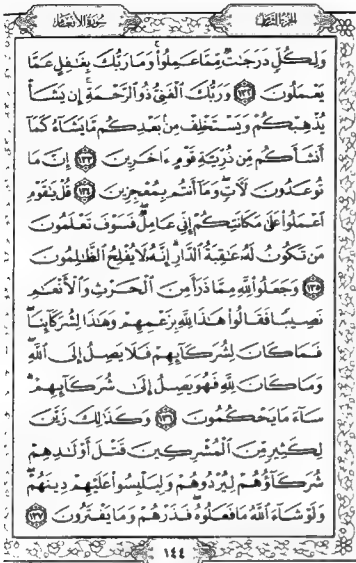 الجزء الثامن
سورة الأنعام
وَلِكُلٍّ دَرَجَاتٌ مِّمَّا عَمِلُوا۟ وَمَا رَبُّكَ بِغَافِلٍ عَمَّا
يَعْمَلُونَ ١٣٢ وَرَبُّكَ ٱلْغَنِيُّ ذُو ٱلرَّحْمَةِ إِن يَشَأْ
يُذْهِبْكُمْ وَيَسْتَخْلِفْ مِنۢ بَعْدِكُم مَّا يَشَآءُ كَمَآ
أَنشَأَكُم مِّن ذُرِّيَّةِ قَوْمٍ ءَاخَرِينَ ١٣٣ إِنَّ مَا
تُوعَدُونَ لَءَاتٍ وَمَآ أَنتُم بِمُعْجِزِينَ ١٣٤ قُلْ يَٰقَوْمِ
ٱعْمَلُوا۟ عَلَىٰ مَكَانَتِكُمْ إِنِّى عَامِلٌ فَسَوْفَ تَعْلَمُونَ
مَن تَكُونُ لَهُۥ عَٰقِبَةُ ٱلدَّارِ إِنَّهُۥ لَا يُفْلِحُ ٱلظَّٰلِمُونَ
١٣٥ وَجَعَلُوا۟ لِلَّهِ مِمَّا ذَرَأَ مِنَ ٱلْحَرْثِ وَٱلْأَنْعَٰمِ
نَصِيبًا فَقَالُوا۟ هَٰذَا لِلَّهِ بِزَعْمِهِمْ وَهَٰذَا لِشُرَكَآئِنَا
فَمَا كَانَ لِشُرَكَآئِهِمْ فَلَا يَصِلُ إِلَى ٱللَّهِ
وَمَا كَانَ لِلَّهِ فَهُوَ يَصِلُ إِلَىٰ شُرَكَآئِهِمْ
سَآءَ مَا يَحْكُمُونَ ١٣٦ وَكَذَٰلِكَ زَيَّنَ
لِكَثِيرٍ مِّنَ ٱلْمُشْرِكِينَ قَتْلَ أَوْلَٰدِهِمْ
شُرَكَآؤُهُمْ لِيُرْدُوهُمْ وَلِيَلْبِسُوا۟ عَلَيْهِمْ دِينَهُمْ
وَلَوْ شَآءَ ٱللَّهُ مَا فَعَلُوهُ فَذَرْهُمْ وَمَا يَفْتَرُونَ ١٣٧
١٤٤